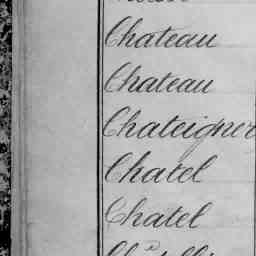 Chateau
Chateau
Chateigner
Chatel
Chatel